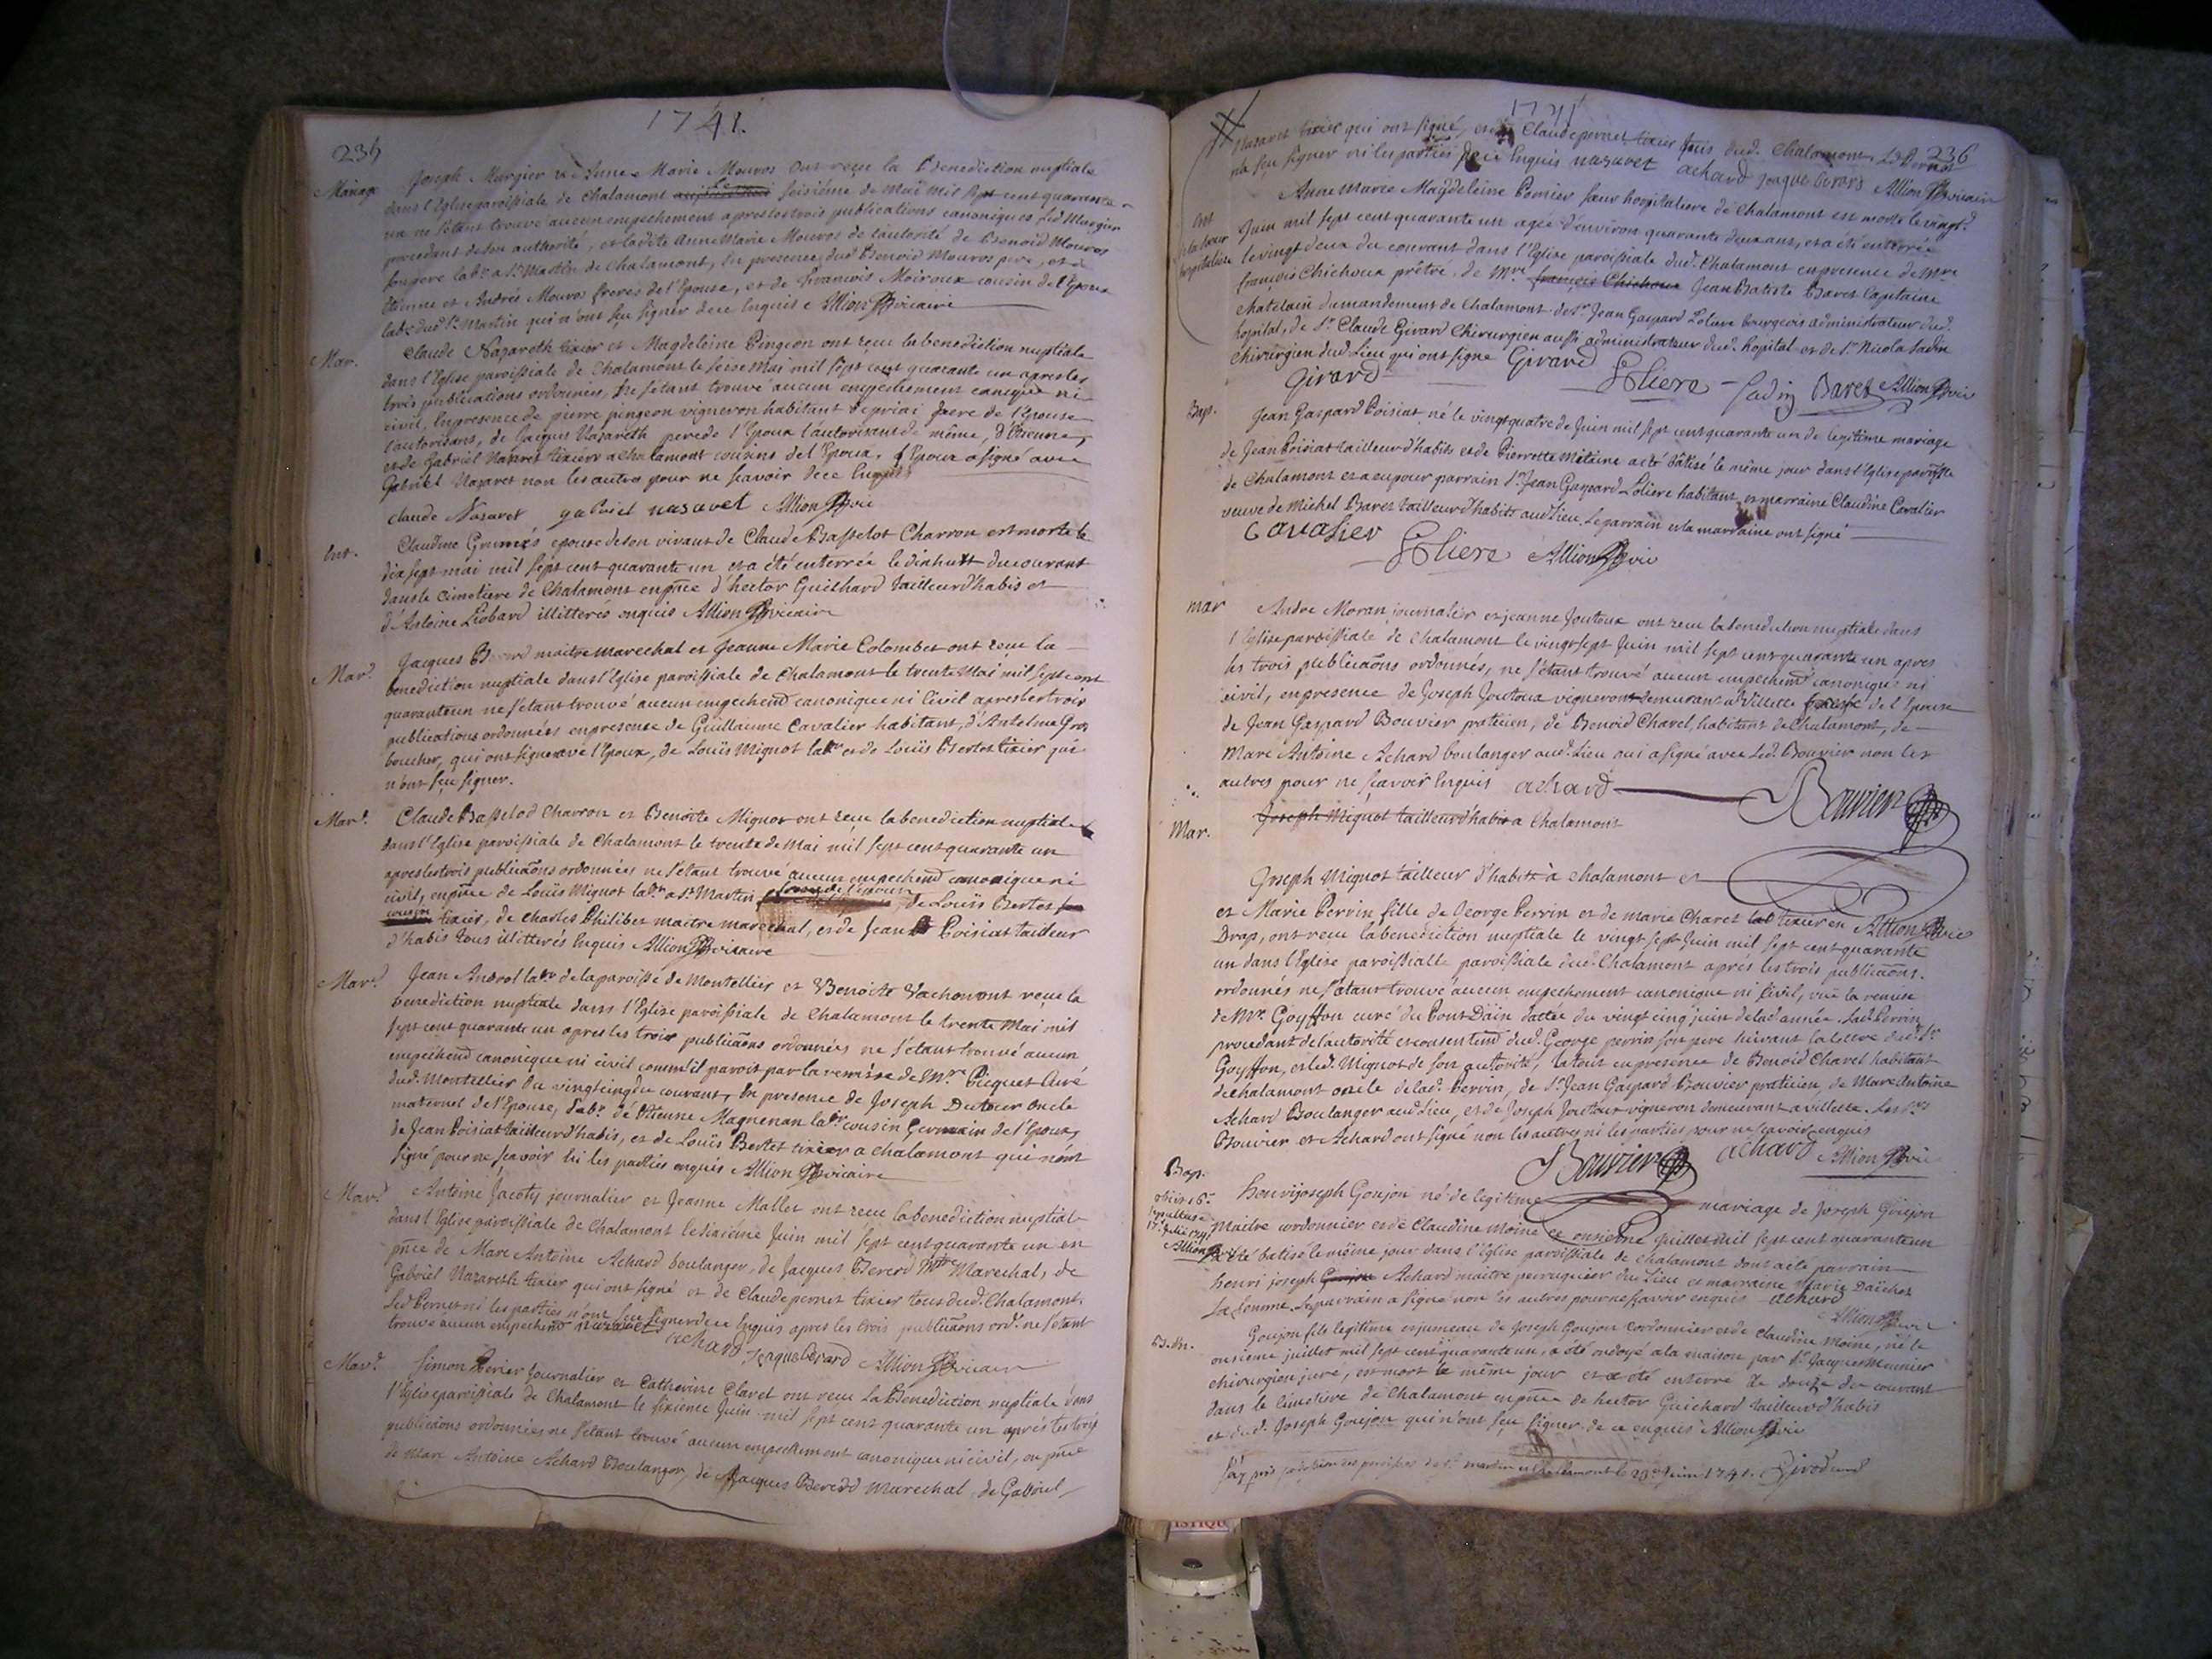 1741.
235
Mariage
Joseph Murgier et Anne Marie Mouros ont reçu la Benediction nuptiale
dans l'Eglise paroissiale de Chalamont le seisième de mai mil sept cent quarante
un ne s'etant trouvé aucun empechement apres les trois publications canoniques Led Murgier
procedant de son authorité, et ladite Anne Marie Mouros de l'autorité de Benoid Mouros
son pere lab.r a St Martin de Chalamont, en presence dud Benoid Mouros pere, et de
Etienne et Andrés Mouros freres de l'Epouse, et de François Moiroux cousin de l'Epoux
lab.r dud St Martin qui n'ont sçu signer de ce enquis Allion vicaire
Mar.
Claude Nazareth tixier et Magdeleine Pingeon ont reçu la benediction nuptiale
dans l'Eglise paroissiale de Chalamont le seise Mai mil sept cent quarante un apres les
trois publications ordonnées, ne s'etant trouvé aucun empechement canoniq. ni
civil, En presence de pierre pingeon vigneron habitant de priai frere de l'Epouse
l'autorisant, de Jacques Nazareth pere de l'Epoux l'autorisant de même, d'Etienne,
et de Gabriel Nazaret tixiers a chalamont cousins de l'Epoux. l'Epoux a signé avec
Gabriel Nazaret non les autres pour ne sçavoir de ce Enquis
claude Nazaret gabriel nasaret Allion vic
Ent.
Claudine epouse de son vivant de Claude Basselot Charron est morte le
dix sept mai mil sept cent quarante un et a été enterrée le dixhuit du courant
dans le cimetiere de Chalamont en pñce d'hector Guichard tailleur d'habis et
d'Antoine Liobard illitterés enquis Allion vicaire
Mar.
Jacques Berard maitre marechal et Jeanne Marie Colombet ont reçu la
benediction nuptiale dans l'Eglise paroissiale de Chalamont le trente Mai mil sept cent
quarante un ne s'etant trouvé aucun empechemt canonique ni Civil apres les trois
publications ordonnées en presence de Guillaume Cavalier habitant, d'Antelme Gros
boucher, qui ont signé avec l'Epoux, de Louïs Mignot lab.r et de Louïs Bertet tixier qui
n'ont sçu signer.
Mar.
Claude Basselod Charron et Benoite Mignot ont reçu la benediction nuptiale
dans l'Eglise paroissiale de Chalamont le trente de Mai mil sept cent quarante un
apres les trois publicaõns ordonnées ne s'etant trouvé aucun empechemt canonique ni
civil, en pñce de Louïs Mignot lab.r a St Martin frere de l'epouse, de Louïs Bertet
cousin tixier, de charles Philibet maitre marechal, et de Jean Poisiat tailleur
d'habis tous illitterés Enquis Allion vicaire
Mar.
Jean Androl lab.r de la paroisse de Montellier et Benoite Vachon ont reçu la
benediction nuptiale dans l'Eglise paroissiale de Chalamont le trente Mai mil
sept cent quarante un apres les trois publicaõns ordonnées ne s'etant trouvé aucun
empechemt canonique ni civil comm'il paroit par la remise de Mre Picquet Curé
dud. Montellier du vingt cinq du courant, En presence de Joseph Dutour oncle
maternel de l'Epouse, lab.r de Etienne Magnenan lab.r cousin Germain de l'Epoux,
de Jean Poisiat tailleur d'habis, et de Louïs Bertet tixier a chalamont qui n'ont
signé pour ne sçavoir ni les parties enquis Allion vicaire
Mar.
Antoine Jacoty journalier et Jeanne Mallet ont reçu la benediction nuptiale
dans l'Eglise paroissiale de Chalamont le sixième Juin mil sept cent quarante un en
pñce de Marc Antoine Achard boulanger, de Jacques Bererd Mtre Marechal, de
Gabriel Nazareth tixier qui ont signé et de Claude pernet tixier tous dud. Chalamont.
Led Pernet ni les parties n'ont sçu signer de ce Enquis apres les trois publicaõns ord. ne s'etant
trouvé aucun empechemt nazaret achard Jaque berard Allion vicaire
Mar.
Simon Perier Journalier et Catherine Claret ont reçu La Benediction nuptiale dans
l'Eglise paroissiale de Chalamont le sixieme Juin mil sept cent quarante un aprés les trois
publicaõns ordonnées ne s'etant trouvé aucun empechement canonique ni civil, en pñce
de Marc Antoine Achard Boulanger, de Jacques Bererd marechal, de Gabriel
1741
236
Nazaret tixier qui ont signé, et de Claude pernet tixier tous dud. Chalamont Led Pernet
n'a sçu signer ni les parties de ce Enquis nasaret achard Jaque berard Allion vicaire
Ent
de la soeur
hospitaliere
Anne Marie Magdeleine Pernier sœur hospitaliere de Chalamont est morte le vingt
Juin mil sept cent quarante un agée d'environ quarante deux ans, et a été enterrée
le vingt deux du courant dans l'Eglise paroissiale dud. Chalamont en presence de Mre
françois Chichoux prêtre, de Mre françois Chichoux Jean Batiste Baret Capitaine
chatelain du mandement de Chalamont de Sr Jean Gaspard Loliere bourgeois administrateur dud.
hopital, de Sr Claude Girard Chirurgien aussi administrateur dud. hopital et de Sr Nicolas Sadin
chirurgien dud Lieu qui ont signé Girard
Girard Loliere Sadin Baret Allion vic
Bap.
Jean Gaspard Poisiat né le vingt quatre de Juin mil sept cent quarante un de legitime mariage
de Jean Poisiat tailleur d'habits et de Pierrette Mitaine a été batisé le même jour dans l'Eglise paroisslle
de Chalamont et a eu pour parrain Sr Jean Gaspard Loliere habitant, et marraine Claudine Cavalier
veuve de Michel Baret tailleur d'habits aud Lieu, Le parrain et la marraine ont signé
Cavalier
Loliere Allion vic
mar
Andre Moran journalier et jeanne Joutoux ont reçu la benediction nuptiale dans
l'Eglise paroissiale de Chalamont le vingt sept Juin mil sept cent quarante un apres
les trois publicaõns ordonnés, ne s'etant trouvé aucun empechemt canonique ni
civil, en presence de Joseph Joutoux vigneron demeurant a Villette frere de l'Epouse
de Jean Gaspard Bouvier praticien, de Benoid Charel, habitant de Chalamont, de
Marc Antoine Achard boulanger aud. Lieu qui a signé avec Led. Bouvier non les
autres pour ne sçavoir Enquis achard Bouvier
Mar.
Joseph Mignot tailleur d'habis a Chalamont
Joseph Mignot tailleur d'habits à chalamont et
et Marie Perrin fille de George Perrin et de marie Charet tixier en Allion vic
Drap, ont reçu la benediction nuptiale le vingt sept Juin mil sept cent quarante
un dans l'Eglise paroissialle paroissiale dud. Chalamont aprés les trois publicaõns.
ordonnés ne s'etant trouvé aucun empechement canonique ni civil, vuë la remise
de Mr. Goyffon curé du Pont Dain dattée du vingt cinq juin de lad année. Lad. Perrin
procedant de l'autorité et consentemt dud. George perrin son pere suivant la lettre dud. Sr
Goyffon, et led. Mignot de son autorité, le tout en presence de Benoid Charel habitant
de chalamont oncle de lad. Perrin, de Sr Jean Gaspard Bouvier praticien, de Marc Antoine
Achard Boulanger aud Lieu, et de Joseph Joutoux vigneron demeurant a villette. Les Srs
Bouvier et Achard ont signé non les autres ni les parties pour ne sçavoir enquis
Bouvier achard Allion vic
Bap.
obiit 16e
sepultus e
17e julii 1741
Allion
henri joseph Goujon né de legitime mariage de Joseph Goujon
Maitre cordonnier et de Claudine Moine ce onsieme Juillet mil sept cent quarante un
a été batisé le même jour dans l'Eglise paroissiale de Chalamont dont a eté parrain
henri joseph Goujon Achard maitre perruquier dud Lieu et marraine Marie Daichet
sa femme. Le parrain a signé non les autres pour ne sçavoir enquis achard
Allion vic
Goujon fils legitime et jumeau de Joseph Goujon Cordonnier et de Claudine Moine, né le
onsieme juillet mil sept cent quarante un, a été ondoyé a la maison par Sr. Jacques Meunier
chirurgien juré, est mort le même jour et a été enterré le douze du courant
dans le cimetiere de Chalamont en pñce de hector Guichard tailleur d'habis
et dud. Joseph Goujon qui n'ont sçu signer de ce enquis Allion vic
J'ay pris possession des paroisses de St. martin et Chalamont le 23e Juin 1741. Girod curé